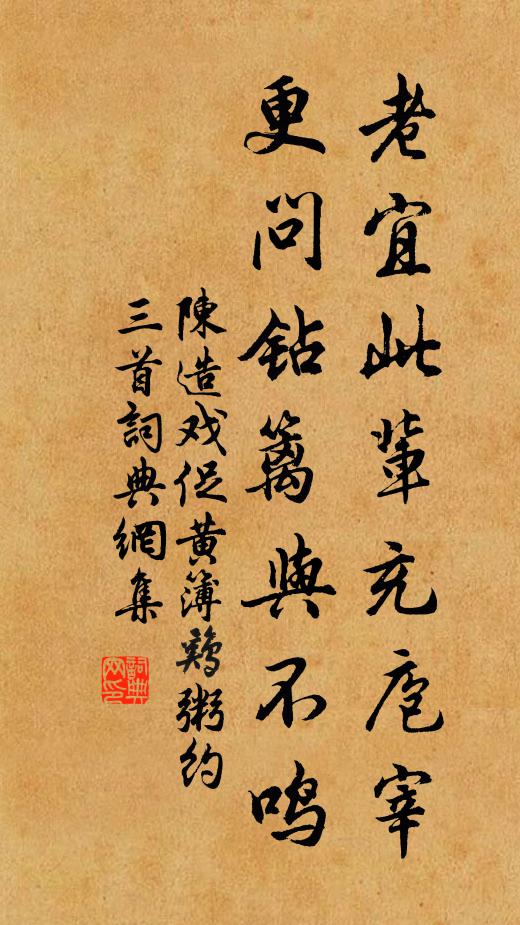 老宜此輩充庖宰
更问钻篱與不鸣
陳造戏促黄簿鷄粥约
三首詞典網集
詞典网印